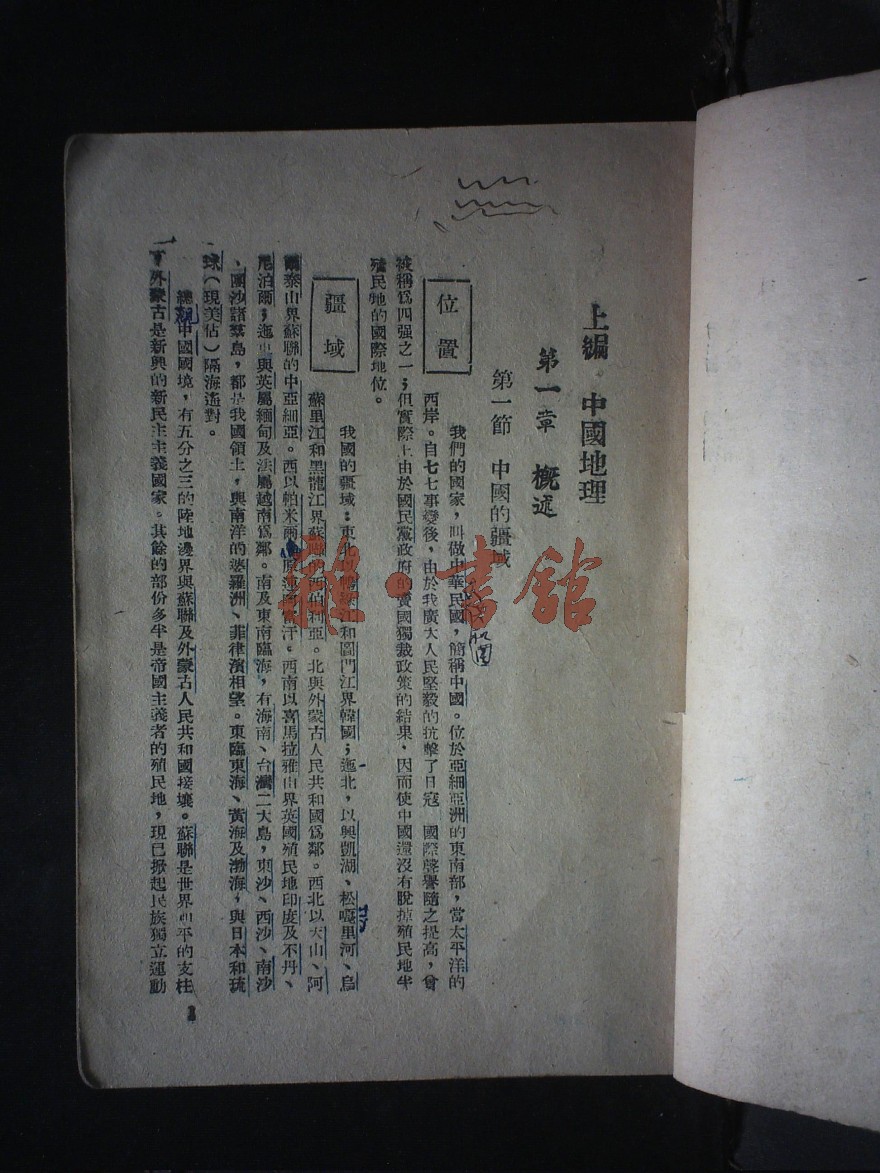 上編 中國地理
第一章 概述
第一節 中國的疆域
位置
我們的國家，叫做中華民國，簡稱中國。位於亞細亞洲的東南部，當太平洋的
西岸。自七七事變後，由於我廣大人民堅毅的抗擊了日寇 國際聲譽隨之提高，曾
被稱爲四强之一；但實際上由於國民黨政府的賣國獨裁政策的結果，因而使中國還沒有脫掉殖民地半
殖民地的國際地位。
疆域
我國的疆域：東北以鴨綠江和圖們江界韓國；迤北，以興凱湖、松噶里河、烏
蘇里江和黑龍江界蘇聯的西伯利亞。北與外蒙古人民共和國爲鄰。西北以天山、阿
爾泰山界蘇聯的中亞細亞。西以帕米爾高原連阿富汗。西南以喜馬拉雅山界英國殖民地印度及不丹、
尼泊爾；迤東與英屬緬甸及法屬越南爲鄰。南及東南臨海，有海南、台灣二大島，東沙、西沙、南沙
、團沙諸羣島，都是我國領土，與南洋的婆羅洲、菲律濱相望。東臨東海、黃海及渤海，與日本和琉
球（現美佔）隔海遙對。
總觀中國國境，有五分之三的陸地邊界與蘇聯及外蒙古人民共和國接壤。蘇聯是世界和平的支柱
，外蒙古是新興的新民主主義國家。其餘的部份多半是帝國主義者的殖民地，現已掀起民族獨立運動
雜·書館